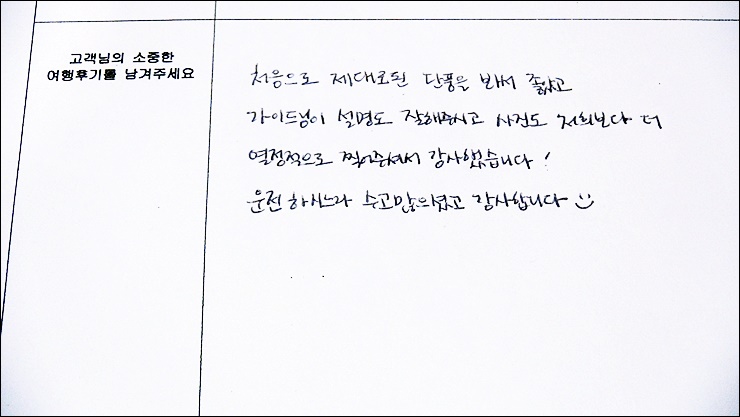 고객님의 소중한
여행후기를 남겨주세요
처음으로 제대로된 단풍을 봐서 좋았고
가이드님이 설명도 잘해주시고 사진도 저희보다 더
열정적으로 찍어주셔서 감사했습니다!
운전 하시느라 수고많으셨고 감사합니다 :)